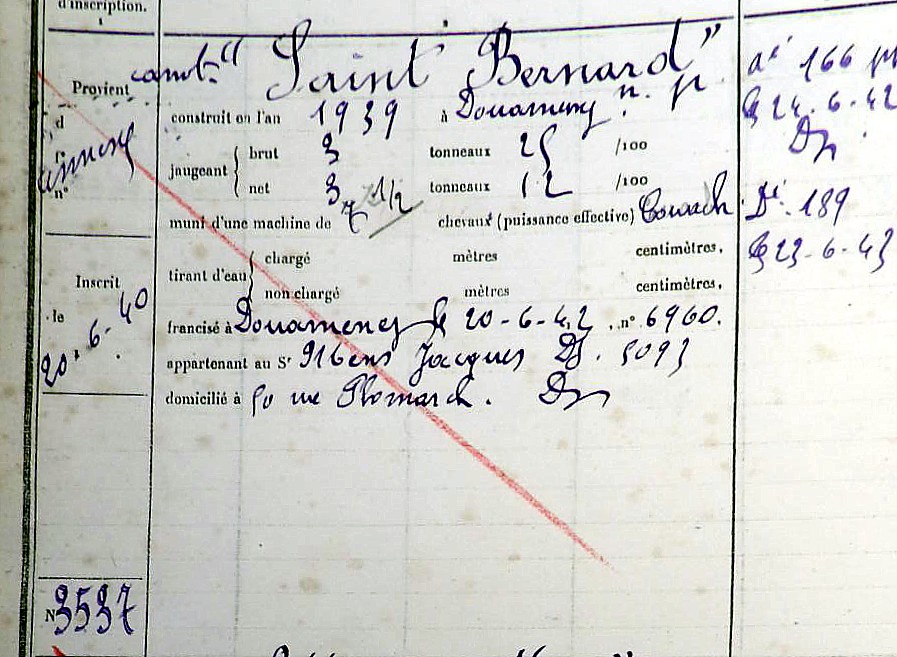 d'inscription.
Provient
d
n°
Inscrit
le
20-6-40
N 3537
canot "Saint Bernard"
construit en l'an 1939 à Douarnenez n. p.
jaugeant brut 3 tonneaux 25 /100
net 3 tonneaux 12 /100
muni d'une machine de 7 1/2 chevaux (puissance effective) Couach
tirant d'eau chargé mètres centimètres.
non chargé mètres centimètres.
francisé à Douarnenez le 20-6-42 n° 6960.
appartenant au Sr Jacques Dz. 5093
domicilié à 50 rue Plomarch. Dz
166
le 24.6.42
Dz
189
le 23-6-43